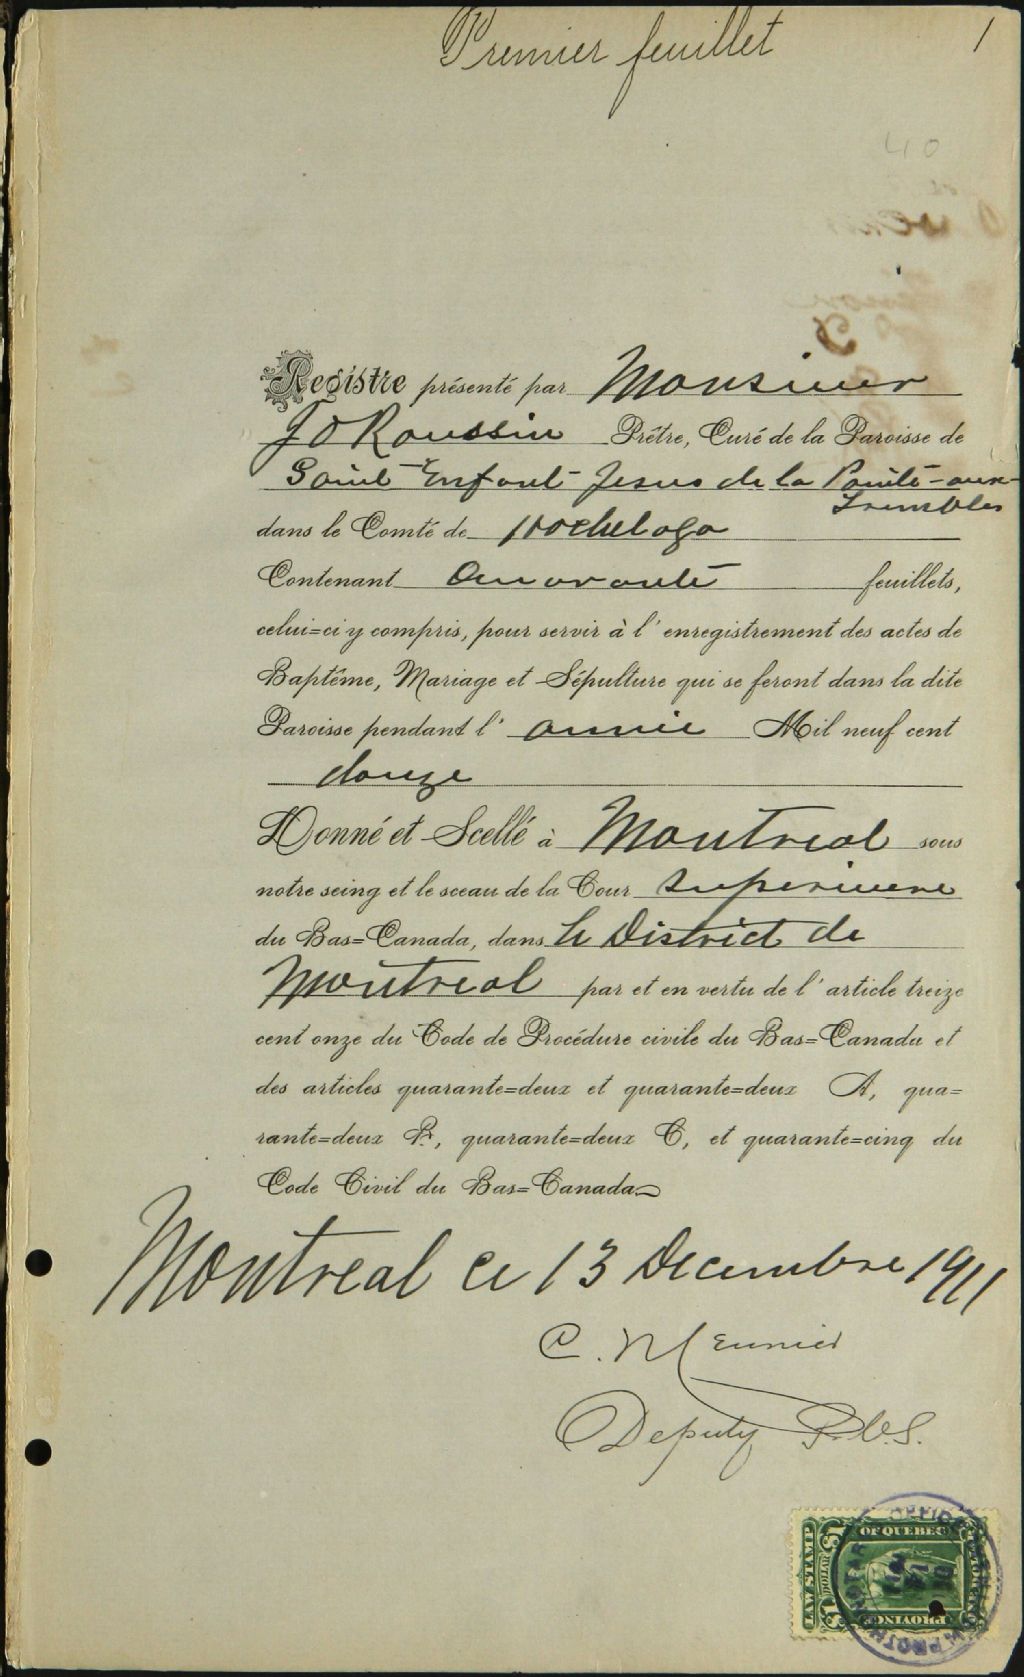 Premier feuillet
1
40
Registre présenté par Monsieur
J O Roussin Prêtre, Curé de la Paroisse de
Saint Enfant Jesus de la Pointe-aux-
Trembles
dans le Comté de Hochelaga
Contenant Quarante feuillets,
celui=ci y compris, pour servir à l'enregistrement des actes de
Baptême, Mariage et Sépulture qui se feront dans la dite
Paroisse pendant l'année Mil neuf cent
douze
Donné et Scellé à Montreal sous
notre seing et le sceau de la Cour Superieure
du Bas=Canada, dans le District de
Montreal par et en vertu de l'article treize
cent onze du Code de Procédure civile du Bas=Canada et
des articles quarante=deux et quarante=deux A, qua=
rante=deux B, quarante=deux C, et quarante=cinq du
Code Civil du Bas=Canada
Montreal ce 13 Decembre 1911
C. Meunier
Deputy P.C.S.
LAW STAMP
$1 DOLLAR $1
OF QUEBEC
PROVINCE
OFFICE